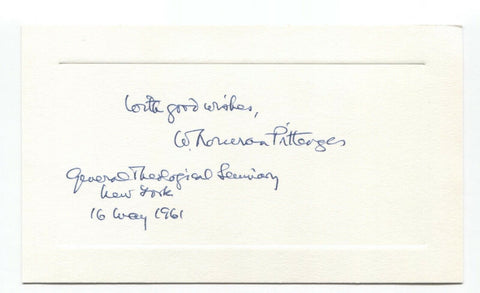 With good wishes,
W. Norman Pittenger
General Theological Seminary
New York
16 May 1961